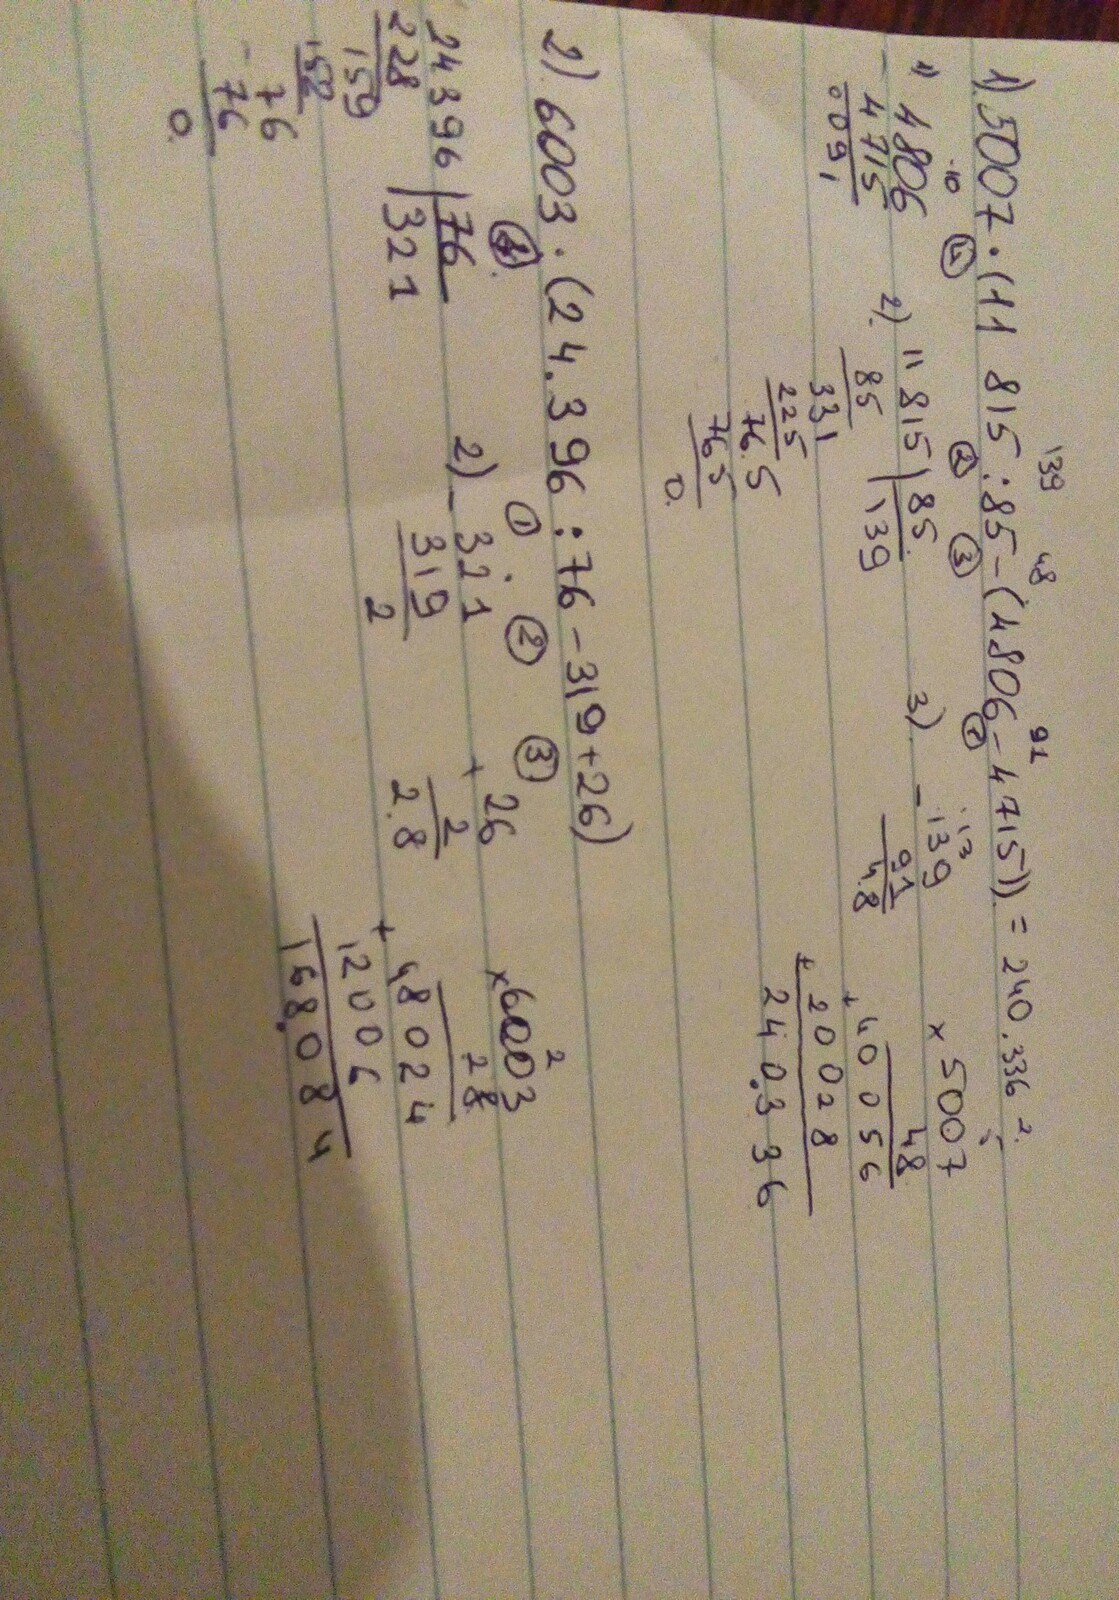 139 48 91
1) 5007 · (11 815 : 85 - (4806 - 4715)) = 240.336 2.
4 2 3 1
10
1) 4806
- 4715
0091
2). 11 815 | 85
85 139
331
225
765
765
0.
3) 13
- 139
91
48
× 5007
48
+ 40056
+ 20028
240.336
2) 6003 · (24.396 : 76 - 319 + 26)
4 1 2 3
24396 | 76
228 321
159
152
76
- 76
0.
2) - 321
319
2
+ 26
2
2.8
2
× 6003
28
+ 48024
12006
168.084